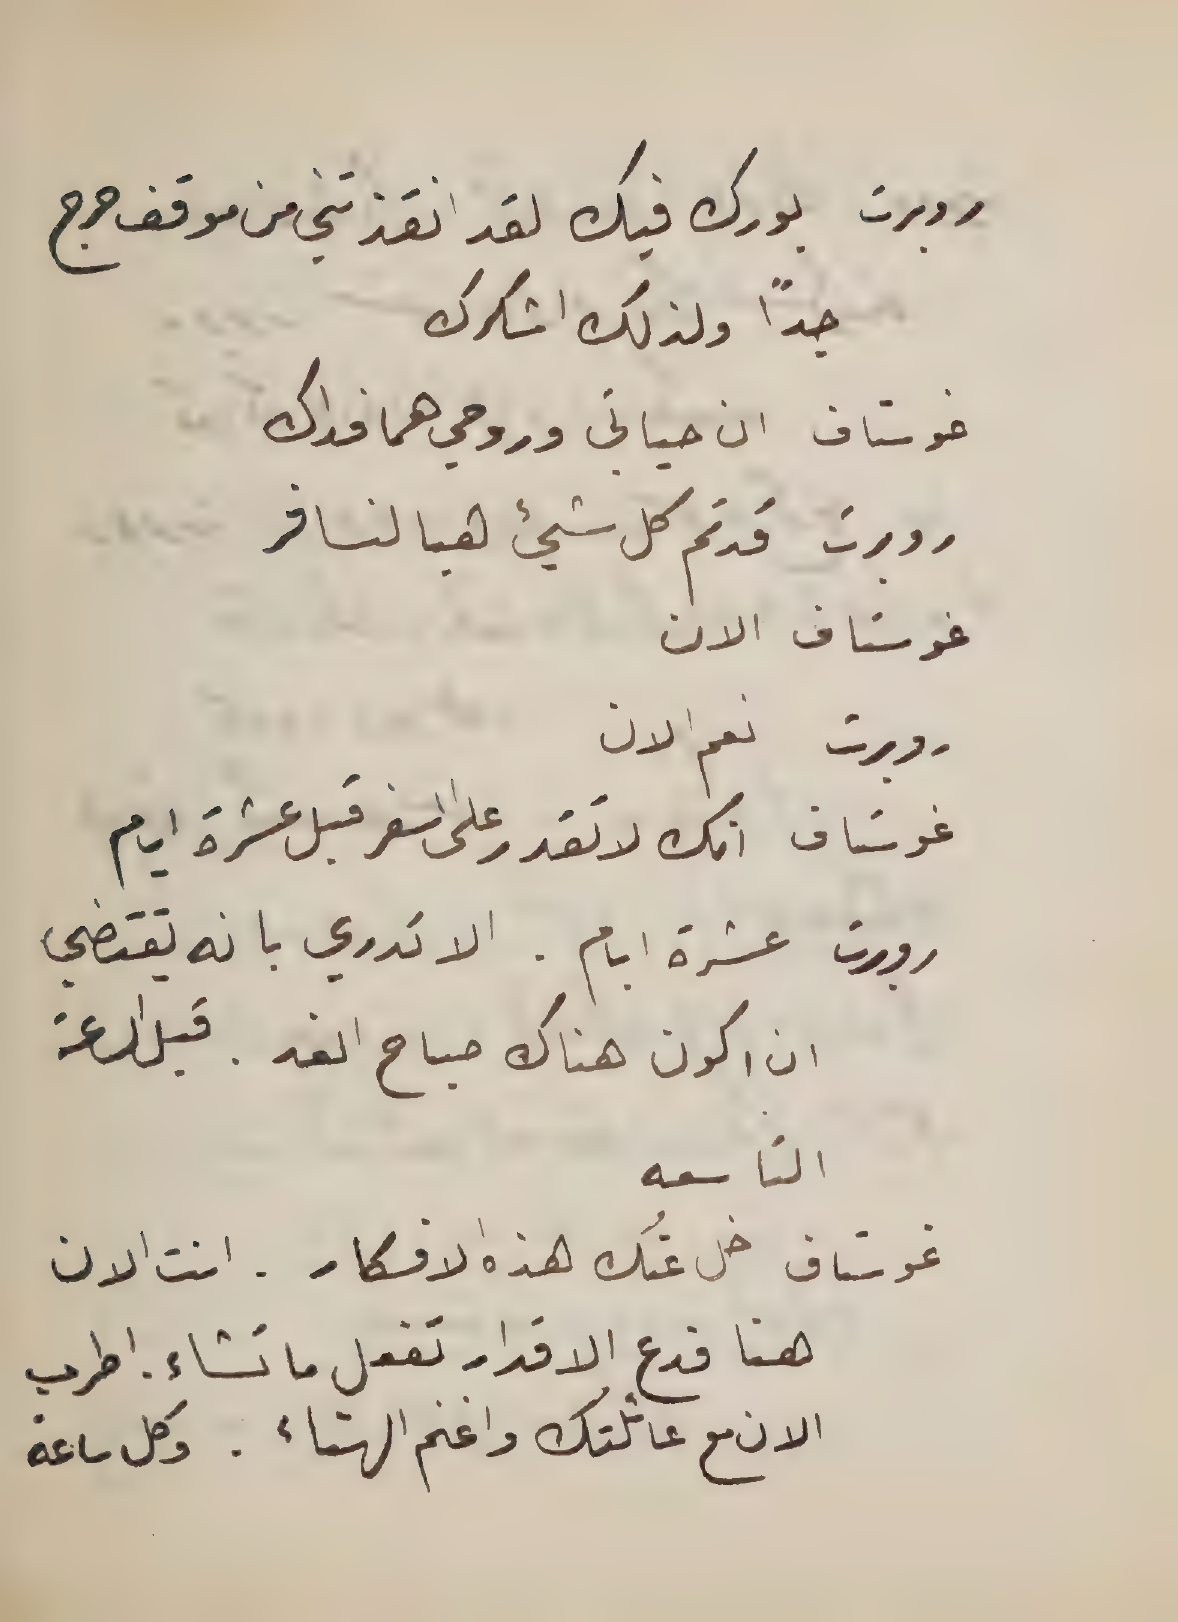 روبرت بورك فيك لقد انقذتني من موقف حرج
جداً ولذلك اشكرك
غوستاف ان حياتي وروحي هما فداك
روبرت قد تم كل شيئ هيا لنسافر
غوستاف الان
روبرت نعم الان
غوستاف انك لا تقدر على السفر قبل عشرة ايام
روبرت عشرة ايام . الا تدري بانه يقتضي
ان اكون هناك صباح الغد . قبل الساعة
التاسعه
غوستاف خل عنك هذه الافكار . انت الان
هنا فدع الاقدار تفعل ما تشاء . اطرب
الان مع عائلتك واغنم الهناء . وكل ساعة